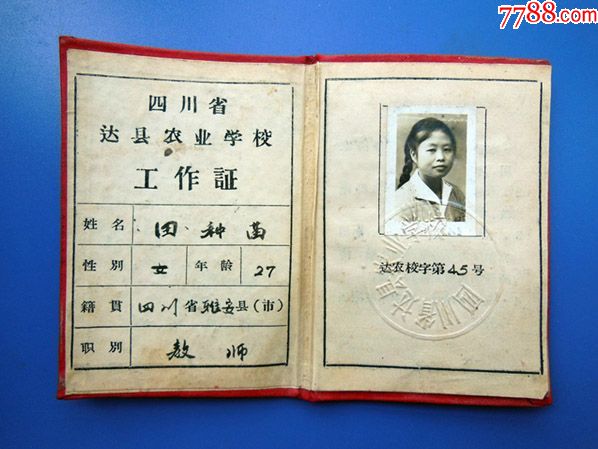 7788.com
四川省
达县农业学校
工作証
姓名 田种茵
性別 女 年龄 27
籍貫 四川省雅安县(市)
职別 教师
达农校字第45号
四川省达县农业学校